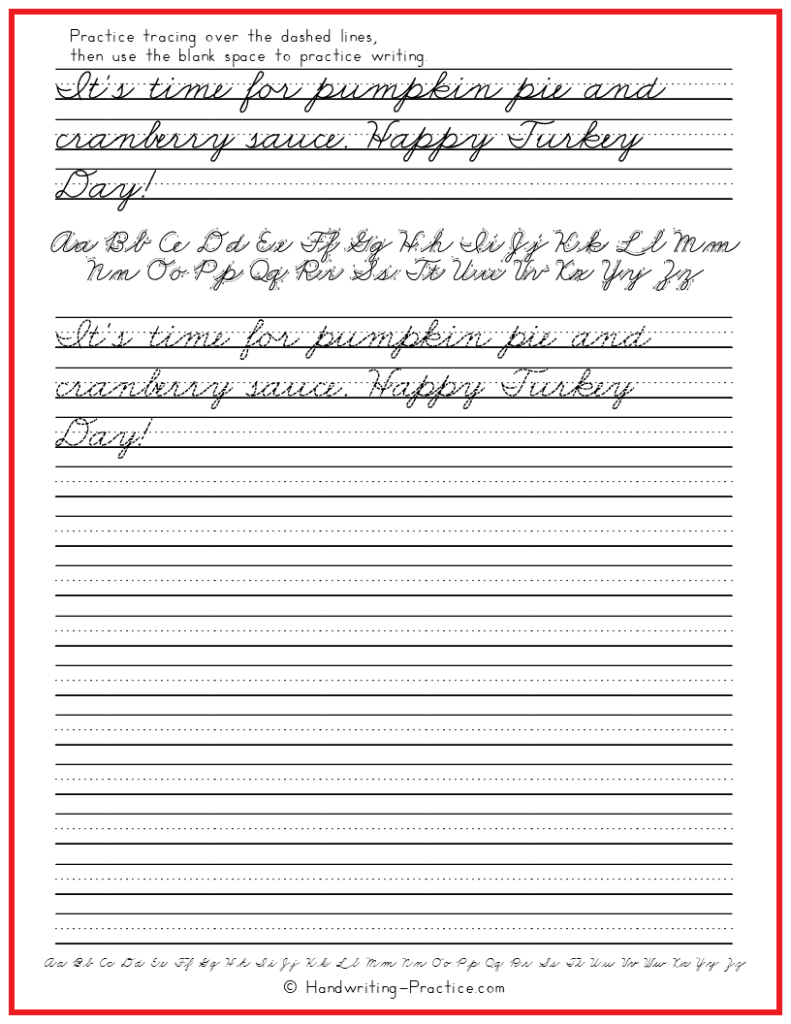 Practice tracing over the dashed lines,
then use the blank space to practice writing.
It's time for pumpkin pie and
cranberry sauce. Happy Turkey
Day!
Aa Bb Cc Dd Ee Ff Gg Hh Ii Jj Kk Ll Mm
Nn Oo Pp Qq Rr Ss Tt Uu Vv Xx Yy Zz
It's time for pumpkin pie and
cranberry sauce. Happy Turkey
Day!
Aa Bb Cc Dd Ee Ff Gg Hh Ii Jj Kk Ll Mm Nn Oo Pp Qq Rr Ss Tt Uu Vv Ww Xx Yy Zz
© Handwriting-Practice.com